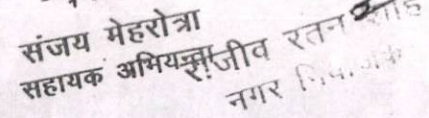 संजय मेहरोत्रा
सहायक अभियन्ता
संजीव रतन
नगर